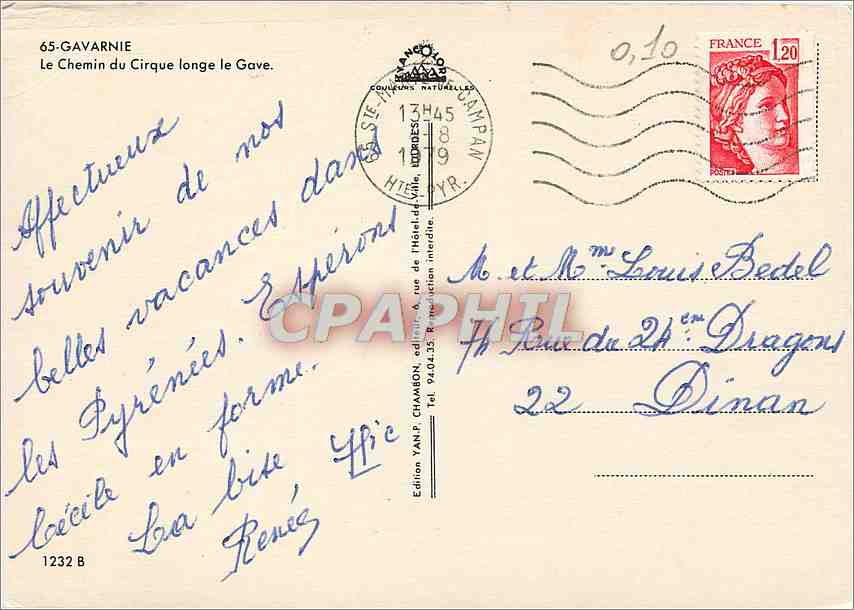 65-GAVARNIE
Le Chemin du Cirque longe le Gave.
Affectueux
souvenir de nos
belles vacances dans
les Pyrénées. Espérons
Cécile en forme.
La bise
Renée
1232 B
COULEURS NATURELLES
CAMPAN
13H45
8
1979
HTES PYR.
0,10
FRANCE
1,20
POSTES
Edition YAN-P. CHAMBON, editeur, 6, rue de l'Hôtel-de-Ville, LOURDES
Tel. 94.04.35. Reproduction interdite.
M. et Mme Louis Bedel
Rue du 24em Dragons
22 Dinan
CPAPHIL